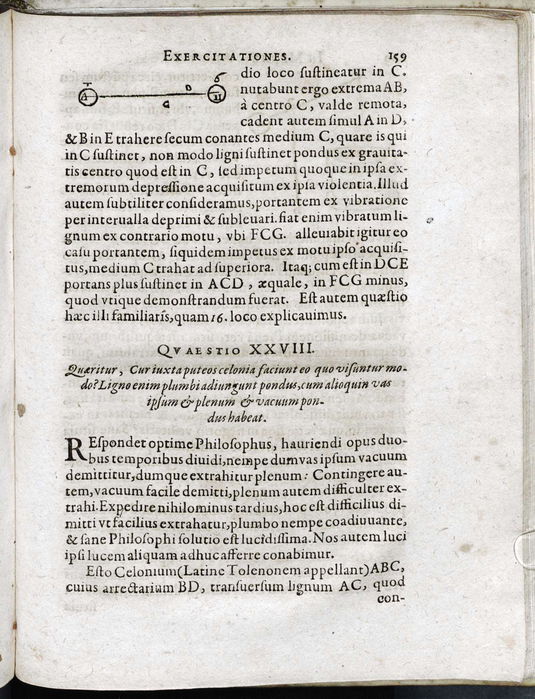 EXERCITATIONES. 159
dio loco ſuſtineatur in C.
nutabunt ergo extrema AB,
à centro C, valde remota,
cadent autem ſimul A in D,
& B in E trahere ſecum conantes medium C, quare is qui
in C ſuſtinet, non modo ligni ſuſtinet pondus ex grauita-
tis centro quod eſt in C, ſed impetum quoque in ipſa ex-
tremorum depreſſione acquiſitum ex ipſa violentia. Illud
autem ſubtiliter conſideramus, portantem ex vibratione
per interualla deprimi & ſubleuari. fiat enim vibratum li-
gnum ex contrario motu, vbi FCG. alleuiabit igitur eo
caſu portantem, ſiquidem impetus ex motu ipſo acquiſi-
tus, medium C trahat ad ſuperiora. Itaq; cum eſt in DCE
portans plus ſuſtinet in ACD, æquale, in FCG minus,
quod vtique demonſtrandum fuerat. Eſt autem quæſtio
hæc illi familiaris, quam 16. loco explicauimus.
QVAESTIO XXVIII.
Quæritur, Cur iuxta puteos celonia faciunt eo quo viſuntur mo-
do? Ligno enim plumbi adiungunt pondus, cum alioquin vas
ipſum & plenum & vacuum pon-
dus habeat.
REſpondet optime Philoſophus, hauriendi opus duo-
bus temporibus diuidi, nempe dum vas ipſum vacuum
demittitur, dumque extrahitur plenum: Contingere au-
tem, vacuum facile demitti, plenum autem difficulter ex-
trahi. Expedire nihilominus tardius, hoc eſt difficilius di-
mitti vt facilius extrahatur, plumbo nempe coadiuuante,
& ſane Philoſophi ſolutio eſt lucidiſſima. Nos autem luci
ipſi lucem aliquam adhuc afferre conabimur.
Eſto Celonium (Latine Tolenonem appellant) ABC,
cuius arrectarium BD, tranſuerſum lignum AC, quod
con-